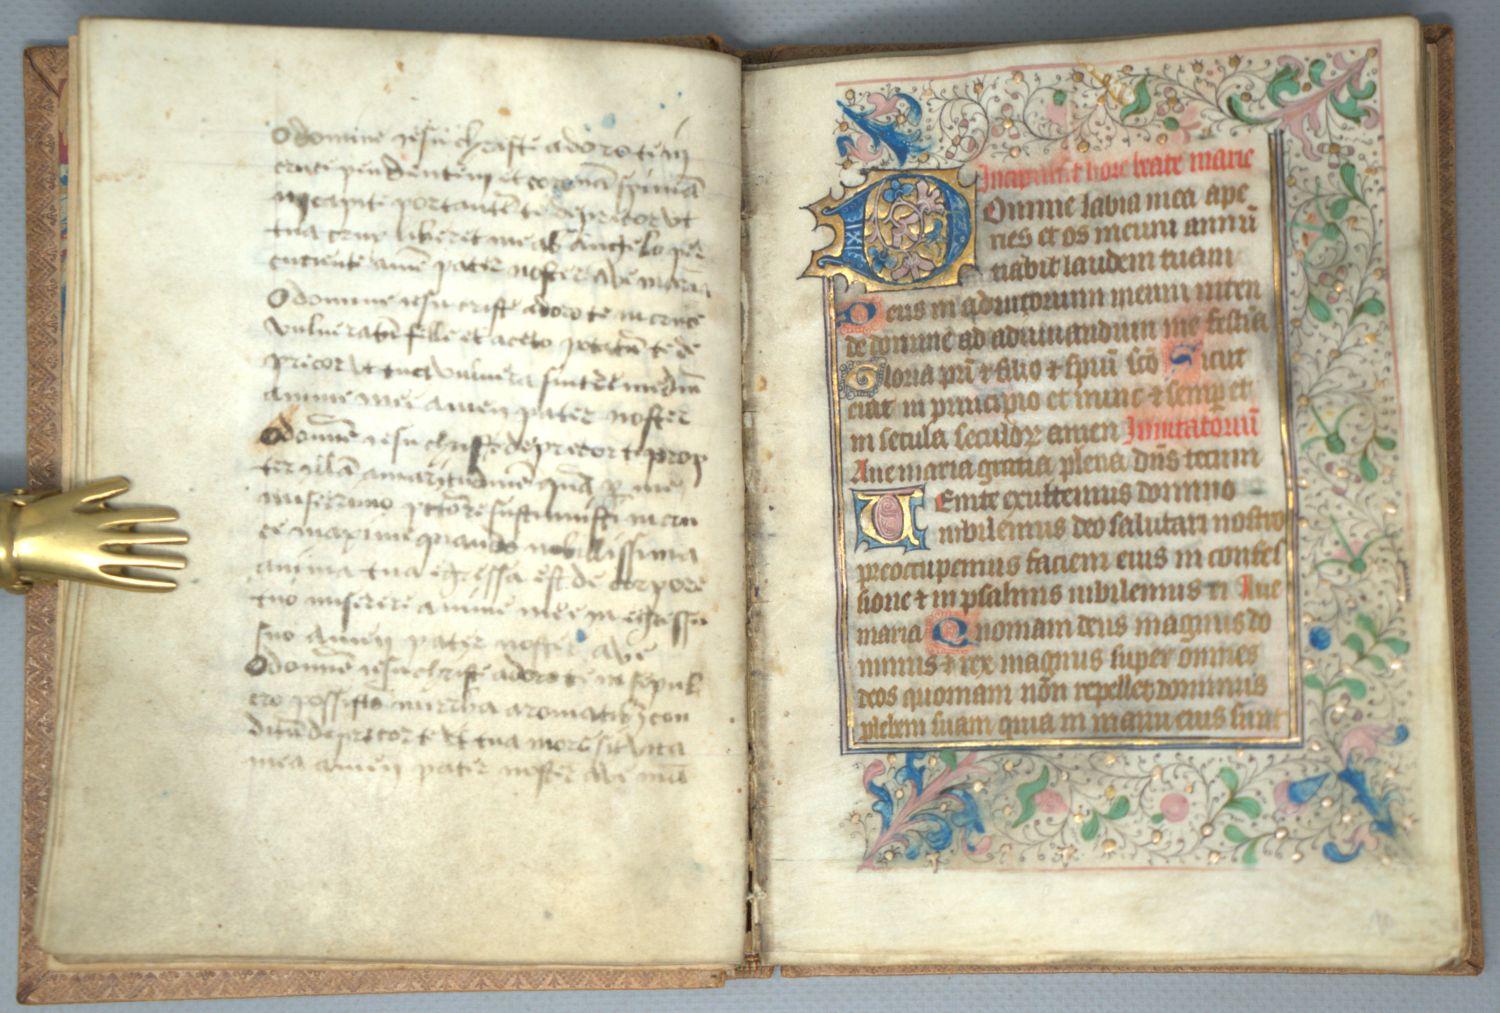 O domine iesu chrifte adoro te in
cruci pendentem et coronã spineã
in capite portantẽ te deprecor vt
tua crux liberet me ab Angelo per
cuciente amẽ pater noster Ave maria
O domine iesu crifte adoro te in cruce
vulneratũ felle et aceto potatũ te de
pricor vt tua vulnera sint remediũ
anime mei amen pater noster
O domine iesu christe deprecor te prop
ter illã amaritudinẽ quã
miserrimo sustinuisti in cru
ce maxime quando nobillissima
anima tua egressa est de corpore
tuo miserere anime mee in egressu
suo amen pater noster ave
O domine iesu christe adoro te in sepul
cro possitũ mirrha aromatibȝ con
ditũ deprecor te vt tua mors sit vita
mea amen pater noster ave
Incipiunt hore beate marie
Domine labia mea ape
ries et os meum annũ
tiabit laudem tuam
Deus in adiutorium meum inten
de domine ad adiuuandum me festiã
Gloria pr̃i ⁊ filio ⁊ spũi sc̃o Sicut
erat in principio et nunc ⁊ semper et
in secula seculoꝝ amen Inuitatoriũ
Aue maria gratia plena dñs tecum
Uenite exultemus domino
iubilemus deo salutari nostro
preoccupemus faciem eius in confes
sione ⁊ in psalmis iubilemus ei Aue
maria Quoniam deus magnus do
minus ⁊ rex magnus super omnes
deos quoniam nõn repellet dominus
plebem suam quia in manu eius sunt